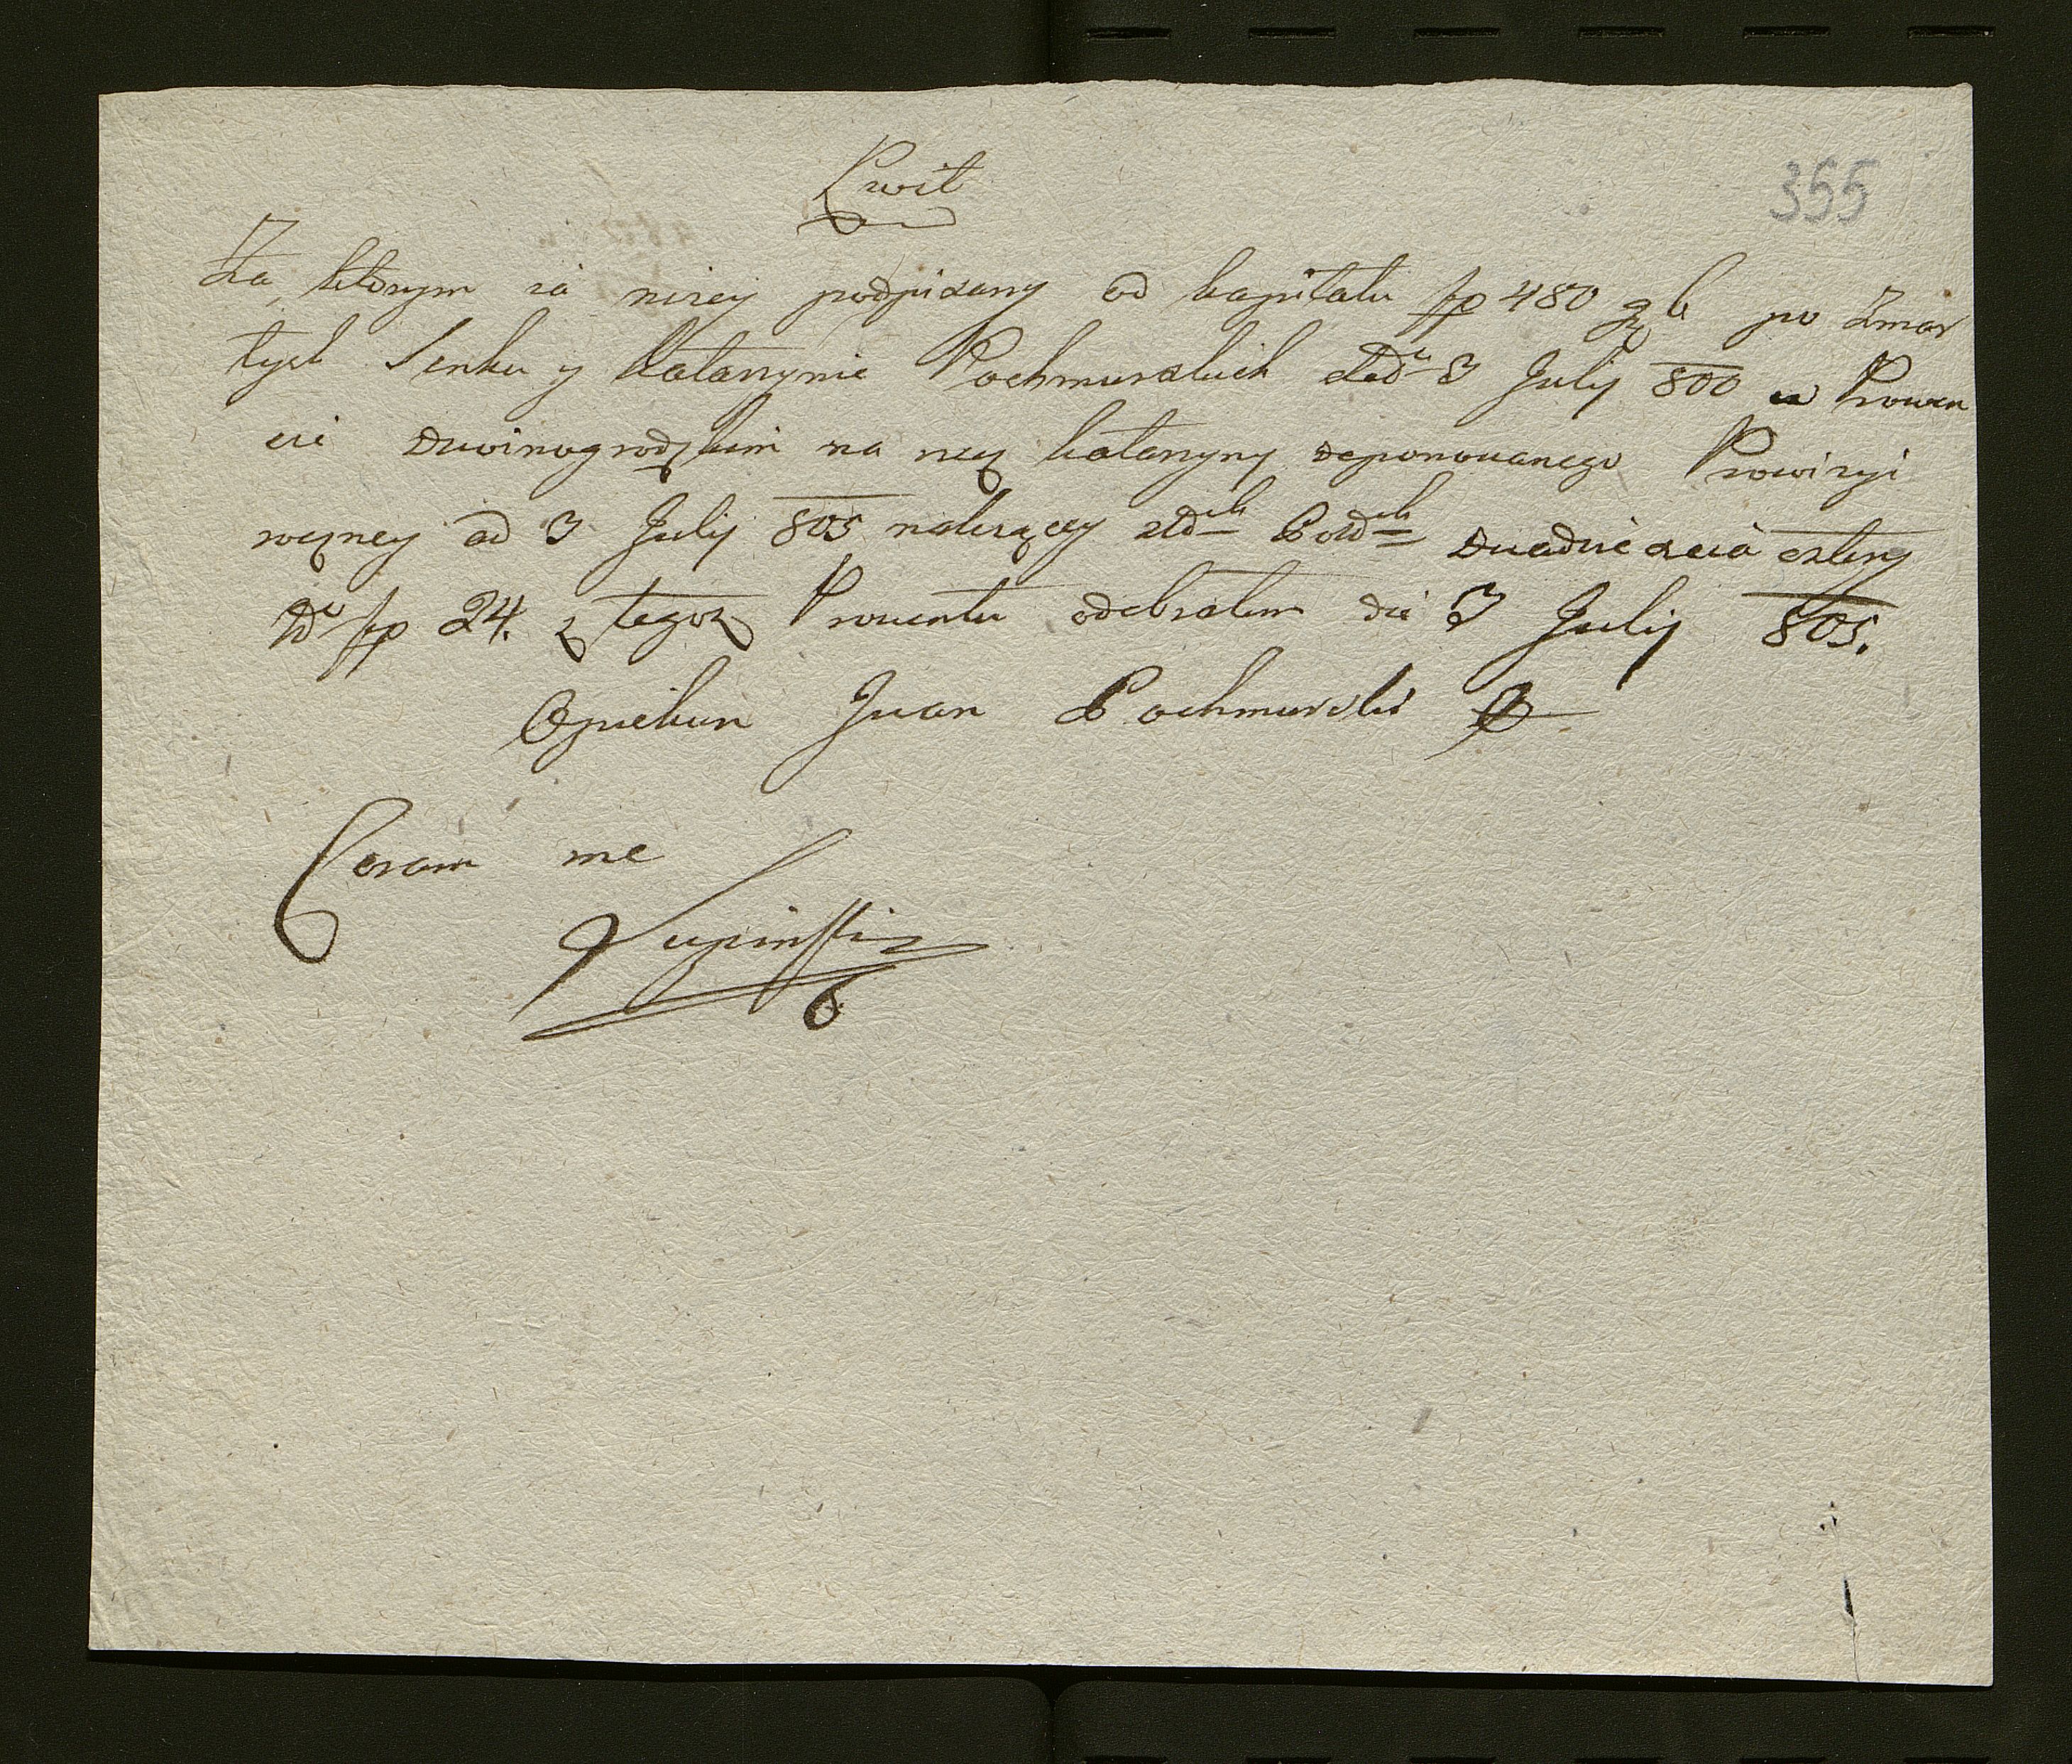 Kwit
355
Za ktorym ia nizey podpisany od kapitału fp 480 po Zmar
łych Senku y Katarzynie Pochmurskich 3 July 800 w Prowen
cie Dwinogrodzkim na rzeż Katarzyny deponowanego Prowizyi
roczney ad 3 July 805 należącey złðch Polðch Dwadziescia cztery
Nro fp 24. z tegoż Prowentu odebrałem die 3 July 805.
Opiekun Iwan Pochmurski
Coram me
Łupinsski